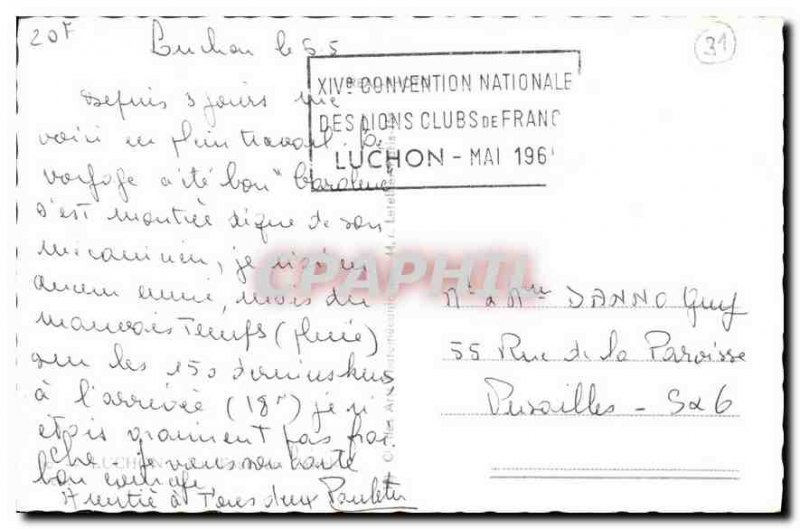 20F
31
Luchon le 5.5
XIVe CONVENTION NATIONALE
DES LIONS CLUBS DE FRANC
LUCHON - MAI 196
Depuis 3 jours me
voici en plein travail. Le
voyage a été bon "Caroline
s'est montrée digne de son
mécanicien, je n'ai eu
aucun ennui, mais du
mauvais temps (pluie)
sur les 150 derniers kms
à l'arrivée (18h) je n'
étais vraiment pas fraî
che - je vous souhaite
bon courage,
Amitié à Tous deux Paulette
CPAPHIL
Mr & Mme DANNO Guy
55 Rue de la Paroisse
Versailles - S&O
LUCHON